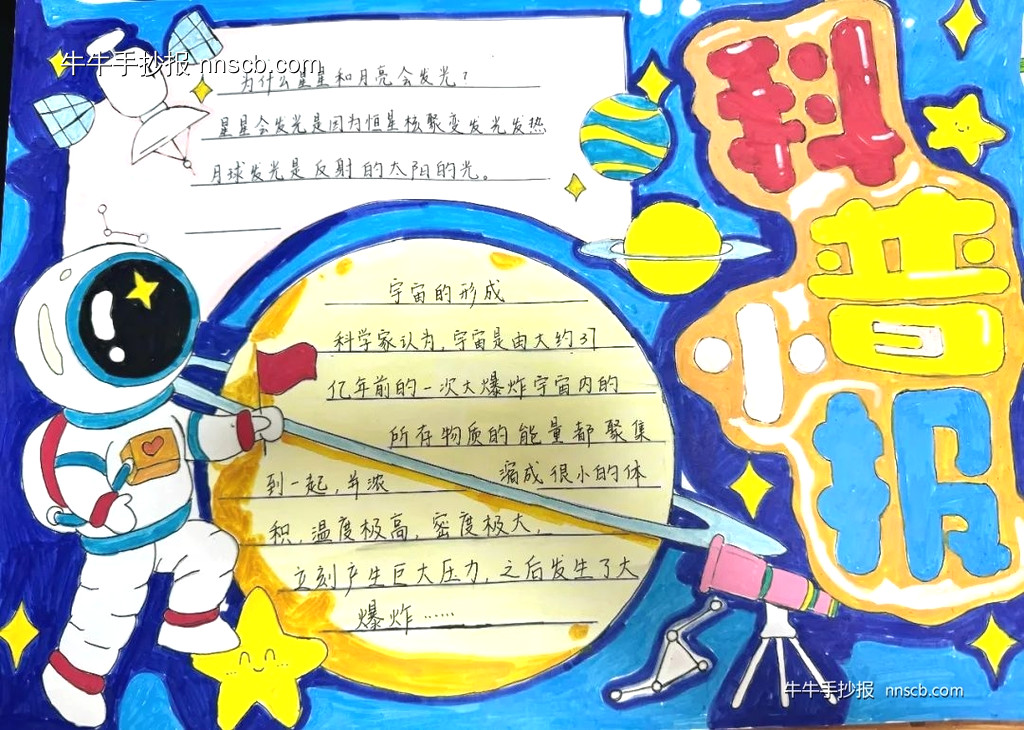 牛牛手抄报 nnscb.com
为什么星星和月亮会发光？
星星会发光是因为恒星核聚变发光发热
月球发光是反射的太阳的光。
科普小报
宇宙的形成
科学家认为，宇宙是由大约137
亿年前的一次大爆炸宇宙内的
所存物质的能量都聚集
到一起，并浓缩成很小的体
积，温度极高，密度极大，
立刻产生巨大压力，之后发生了大
爆炸……
牛牛手抄报 nnscb.com